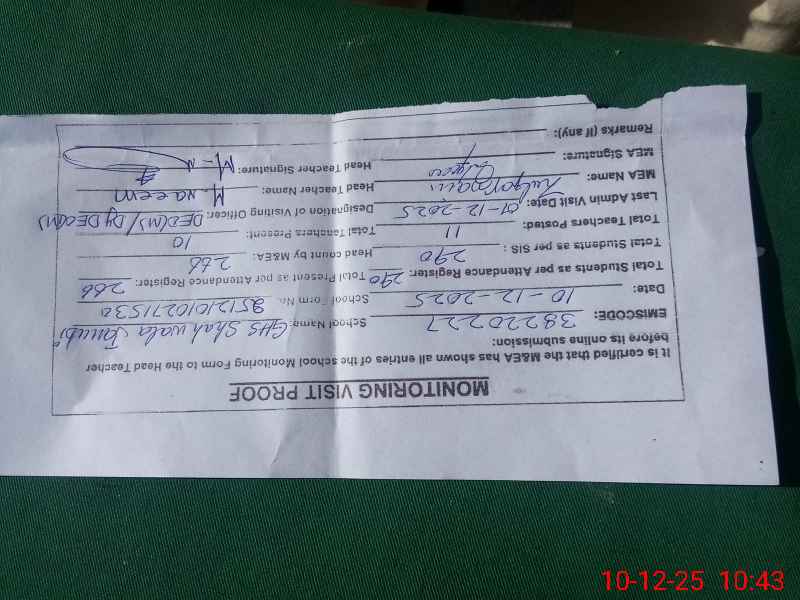 MONITORING VISIT PROOF
It is certified that the M&EA has shown all entries of the school Monitoring Form to the Head Teacher
before its online submission:
EMISCODE: 38220227 School Name: GHS Shah wala Janubi
Date: 10-12-2025 School Form No. 25121010271530
Total Students as per Attendance Register: 290 Total Present as per Attendance Register: 266
Total Students as per SIS: 290 Head count by M&EA: 266
Total Teachers Posted: 11 Total Teachers Present: 10
Last Admin Visit Date: 01-12-2025 Designation of Visiting Officer: DEO(MS)/ Dy DEO(M)
MEA Name: Head Teacher Name: M. naeem
MEA Signature: Head Teacher Signature: M-N
Remarks (if any):
10-12-25 10:43